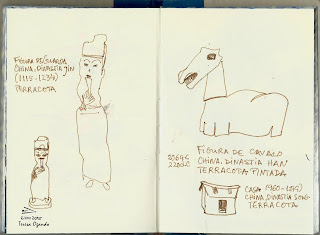 FIGURA DE GUARDA
CHINA, DINASTIA JIN
(1115-1234)
TERRACOTA
FIGURA DE CAVALO
CHINA. DINASTIA HAN
TERRACOTA PINTADA
CASA (960-1279)
CHINA, DINASTIA SONG
TERRACOTA